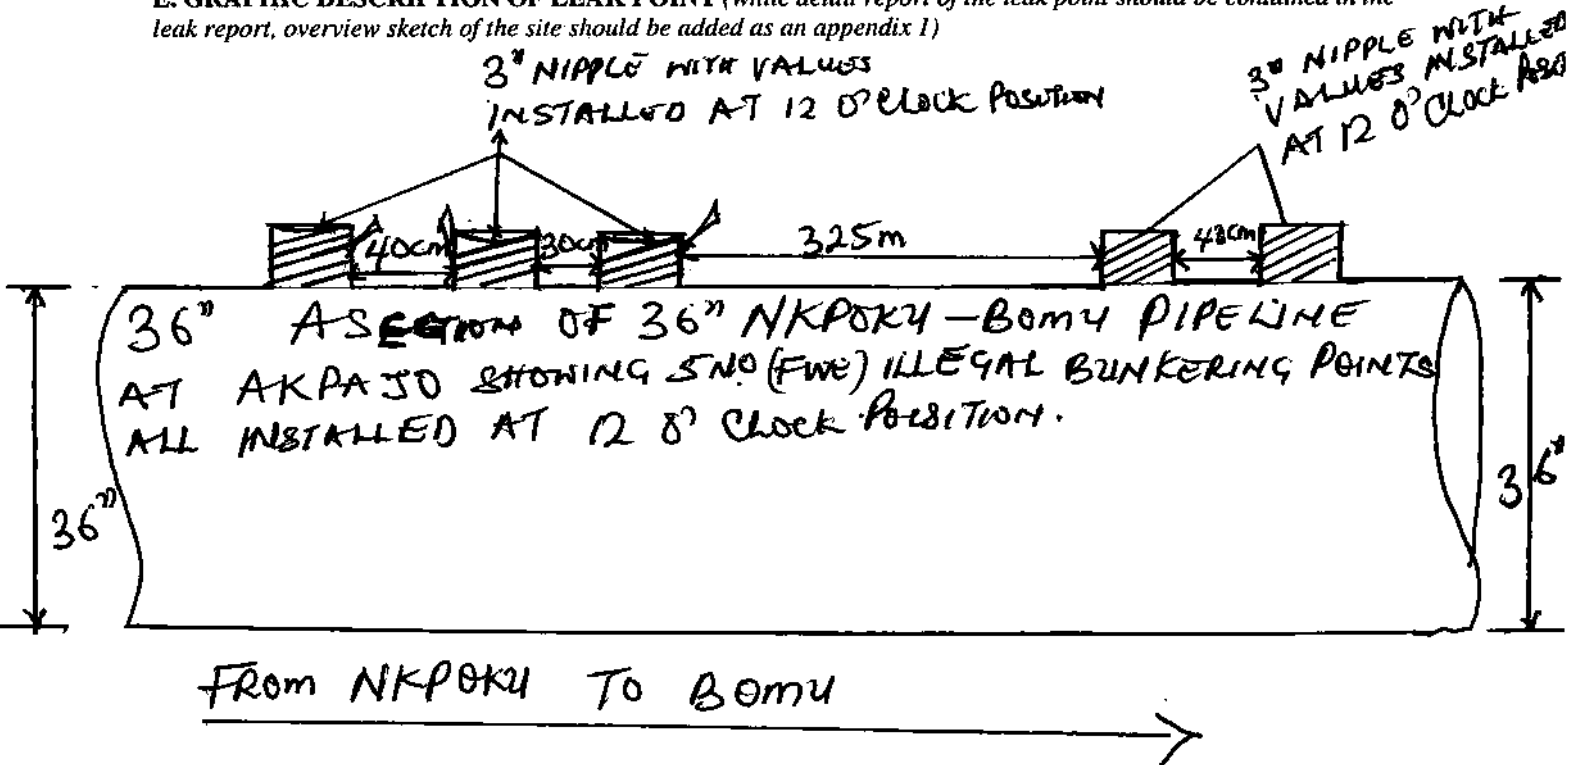 E. GRAPHIC DESCRIPTION OF LEAK POINT (while detail report of the leak point should be contained in the
leak report, overview sketch of the site should be added as an appendix 1)
3" NIPPLE WITH VALUES
INSTALLED AT 12 O'CLOCK POSITION
3" NIPPLE WITH
VALUES INSTALLED
AT 12 O'CLOCK
40cm
30cm
325m
48cm
36" A SECTION OF 36" NKPOKU - BOMU PIPELINE
AT AKPAJO SHOWING 5 NO. (FIVE) ILLEGAL BUNKERING POINTS
ALL INSTALLED AT 12 O' CLOCK POISITION.
36"
36"
FROM NKPOKU TO BOMU